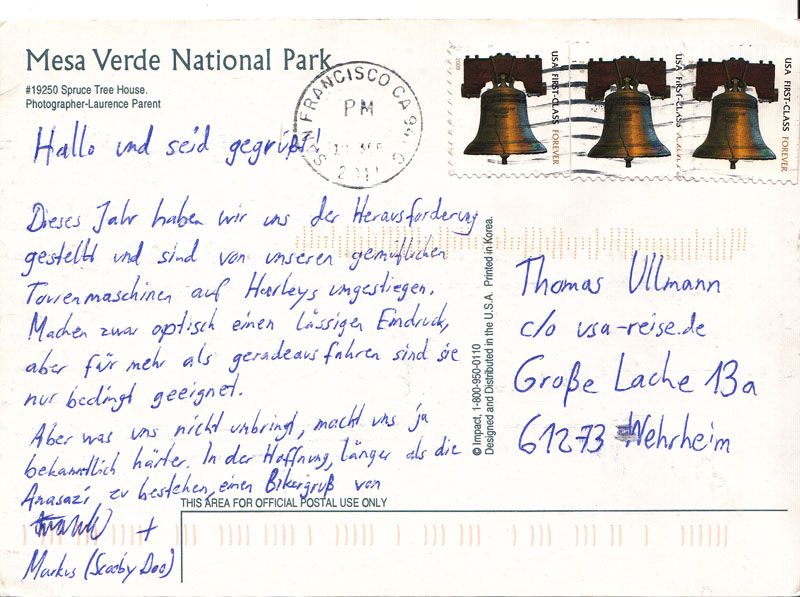 Mesa Verde National Park
#19250 Spruce Tree House.
Photographer-Laurence Parent
SAN FRANCISCO CA 941
PM
2011
2008
USA FIRST-CLASS FOREVER
USA FIRST-CLASS FOREVER
USA FIRST-CLASS FOREVER
Hallo und seid gegrüßt!
Dieses Jahr haben wir uns der Herausforderung
gestellt und sind von unseren gemütlichen
Tourenmaschinen auf Harleys umgestiegen.
Machen zwar optisch einen lässigen Eindruck,
aber für mehr als geradeausfahren sind sie
nur bedingt geeignet.
Aber was uns nicht umbringt, macht uns ja
bekanntlich härter. In der Hoffnung, länger als die
Anasazi zu bestehen, einen Bikergruß von
+
Markus (Scooby Doo)
© Impact, 1-800-950-0110
Designed and Distributed in the U.S.A. Printed in Korea.
Thomas Ullmann
c/o usa-reise.de
Große Lache 13a
61273 Wehrheim
THIS AREA FOR OFFICIAL POSTAL USE ONLY